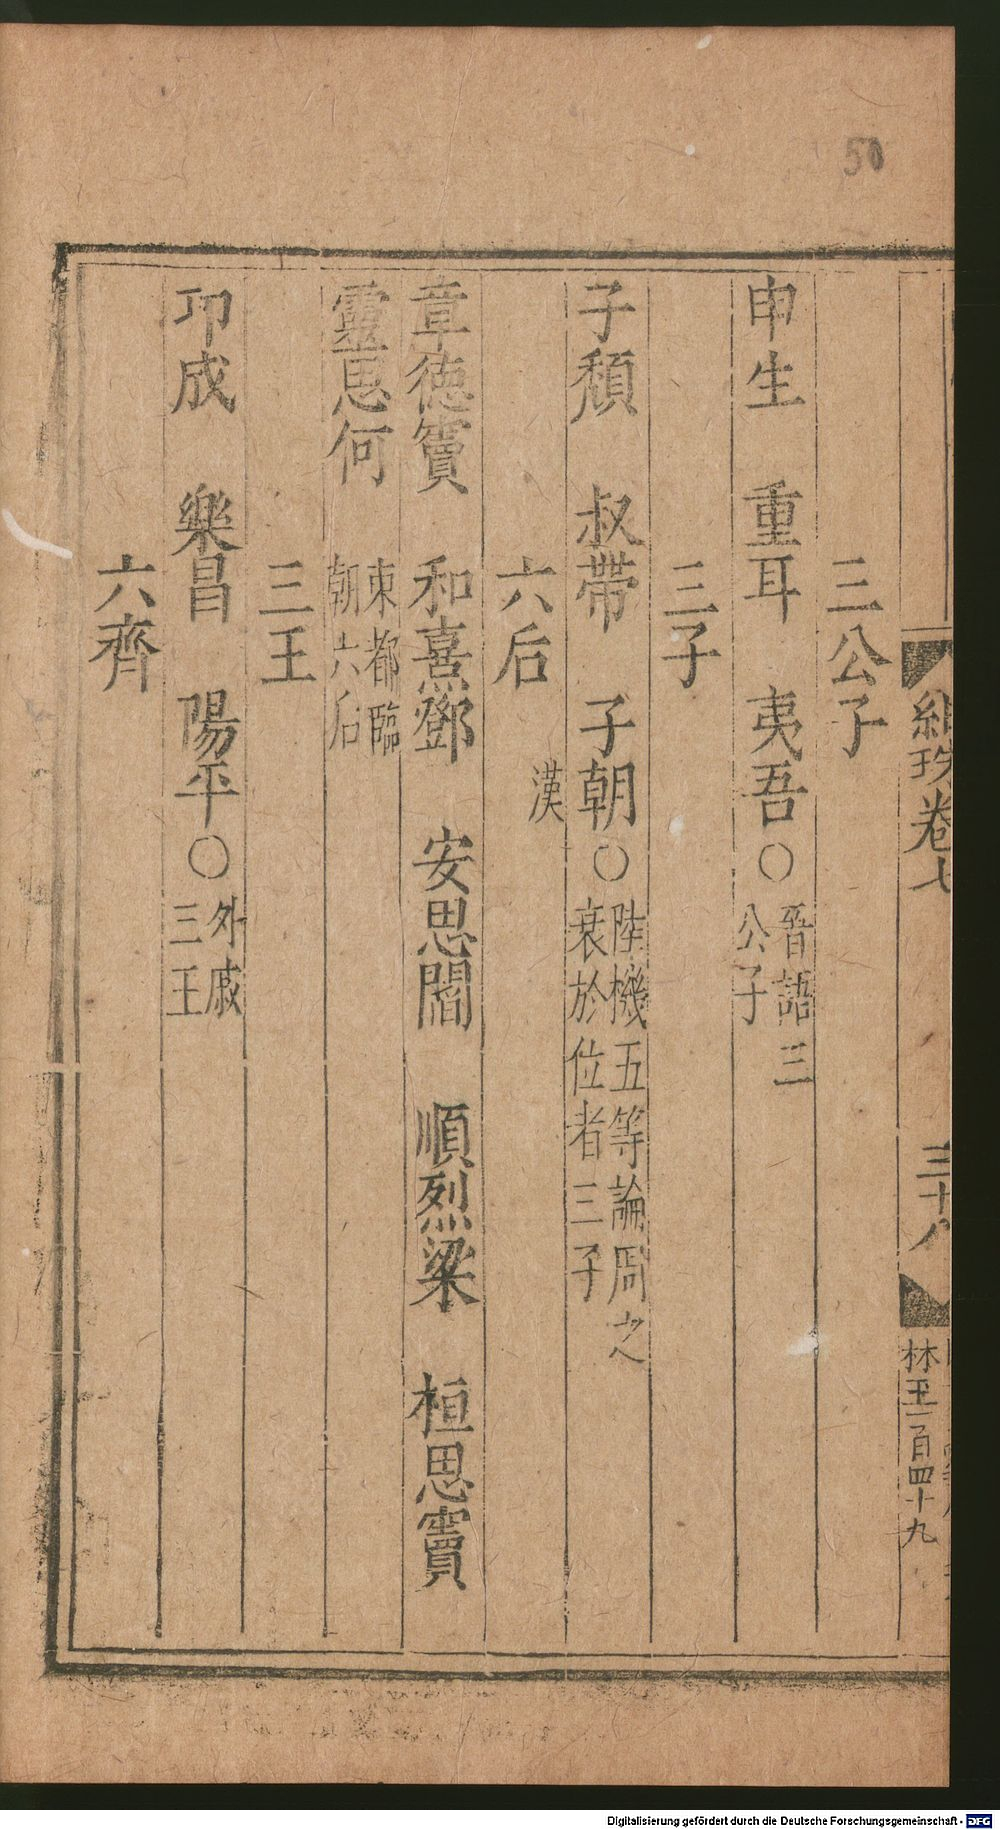 50
紺珠卷七
三十八
林五一百四十九
三公子
申生　重耳　夷吾○晉語三
公子
三子
子頹　叔帶　子朝○陸機五等論周之
衰於位者三子
六后　漢
章德竇　和熹鄧　安思閻　順烈梁　桓思竇
靈思何　東都臨
朝六后
三王
卭成　樂昌　陽平○外戚
三王
六齊
Digitalisierung gefördert durch die Deutsche Forschungsgemeinschaft - DFG